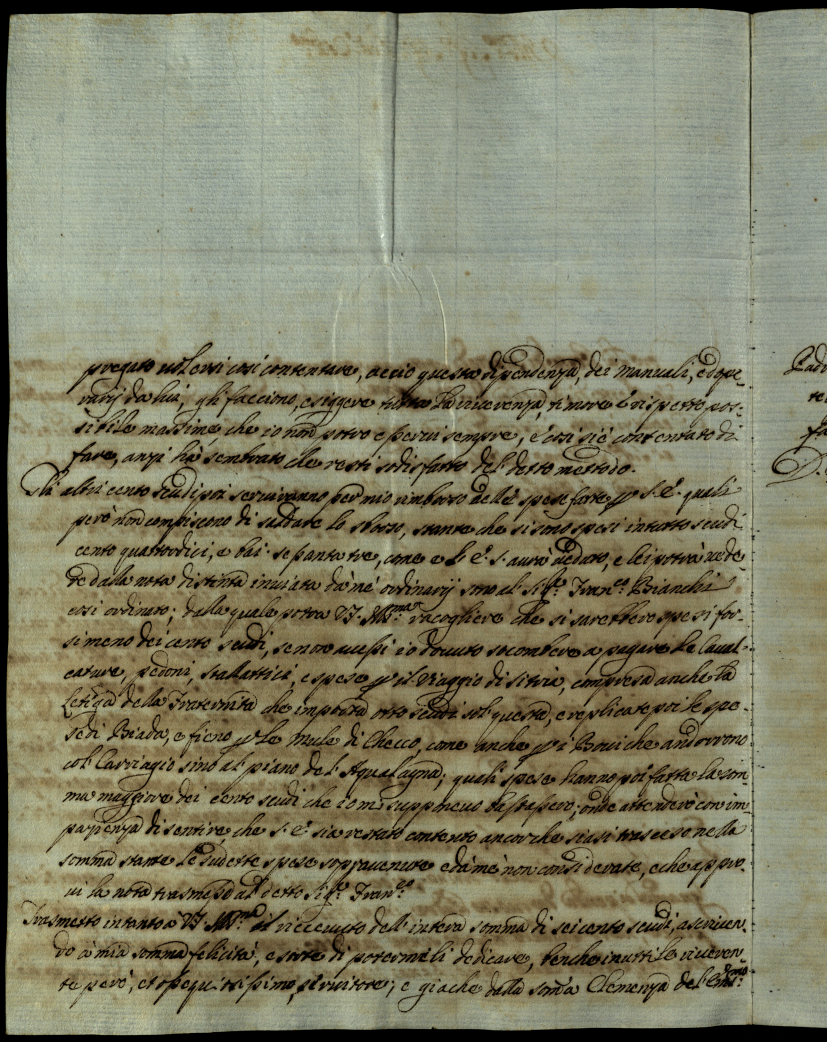 pregato volersi così contentare, acciò questa dipendenza, dei manuali, ed ope-
rarij da lui, gli facciano, esiggere tutta la riverenza, timore e rispetto pos-
sibile massime, che io non potrò esservi sempre, e così si è contentato di
fare, anzi hà sembrato che resti sodisfatto del detto mettodo.
Gli altri cento scudi poi serviranno per mio rimborso delle spese fatte p S. E. quali
però non compiscono di saldare lo sborso, stante che si sono spesi in tutto scudi
cento quattordici, e bai. sessanta tre, come e l' E. S. avrà veduto, e lei potrà vede-
re dalla nota distinta inviata da me ordinarij sono al Sig.r Fran.co Bianchi
così ordinato; dalla quale potrà VS. Ill.ma racogliere che si sarebbero spesi for-
si meno dei cento scudi, se non avessi io dovuto socombere a pagare le Caval-
cature, pedoni, stallattici, e spese p il viaggio di Silvia, compresa anche la
Letiga della Fraternita che importa otto scudi sol questa, e replicate poi le spe-
se di Biada, e fieno p le Mule di Checco, come anche p i Bovi che andorono
col Carriagio sino al piano dell' Aqualagna; quali spese hanno poi fatte la som
ma maggiore dei cento scudi che io mi supponevo bastassero; onde attenderò con im-
pazienza di sentire, che S. E. sia restato contento ancorche siasi trascorso nella
somma stante le sudette spese sopravenute e da me non considerate, e che appro-
vi la nota trasmessa al detto Sig.r Fran.co
Trasmetto intanto à VS. Ill.ma il ricevuto dell' intera somma di seicento scudi, ascriven
do à mia somma felicità, e sorte di potermeli dedicare, benche inuttile riveren-
te però, et ossequiosissimo servitore; e giache dalla somma Clemenza dell' Em.mo